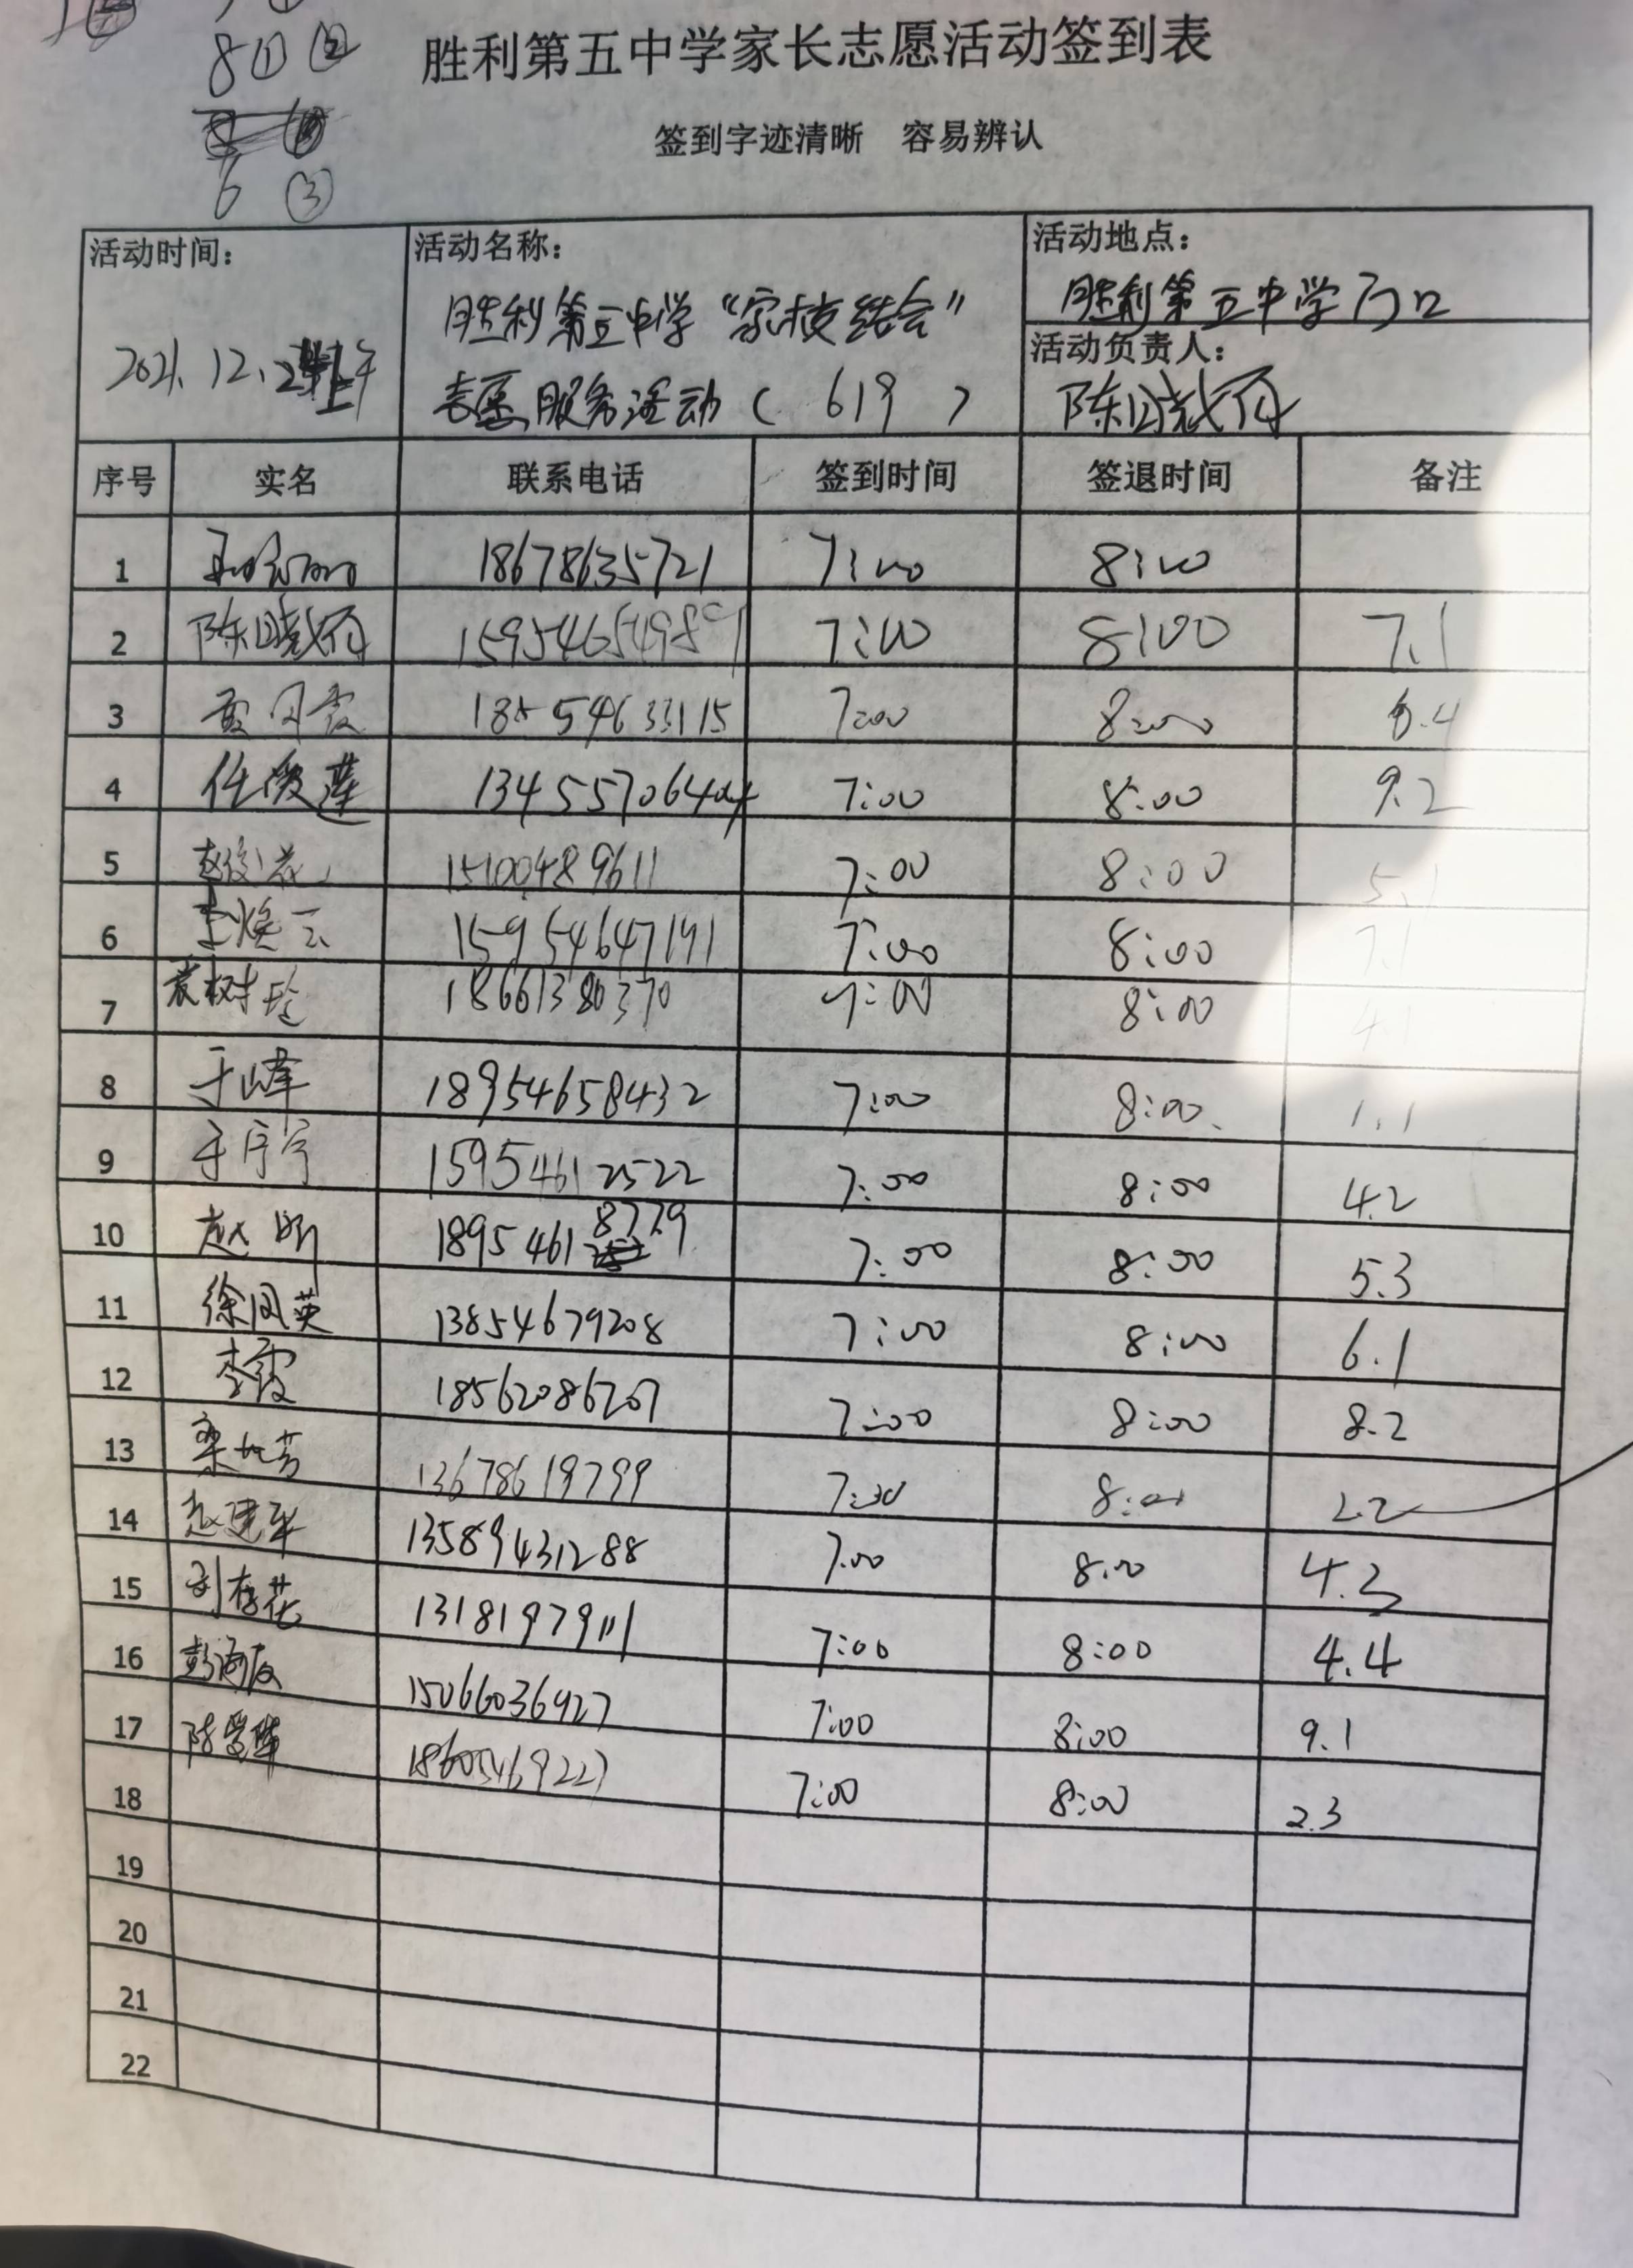 8 ① ②
6 ③
胜利第五中学家长志愿活动签到表
签到字迹清晰 容易辨认
活动时间: 活动名称: 活动地点:
胜利第五中学“家校结合” 胜利第五中学门口
2021.12.2 上午 活动负责人:
志愿服务活动( 619 ) 陈晓
序号 实名 联系电话 签到时间 签退时间 备注
1 18678635721 7:00 8:00
2 陈晓 15954654989 7:00 8:00 7.1
3 月霞 18554633115 7:00 8:00 6.4
4 任俊莲 7:00 8:00 9.2
5 赵俊花 15100489611 7:00 8:00 5.1
6 王焕云 15954647191 7:00 8:00 7.1
7 袁树 18661380370 7:00 8:00 4.1
8 于峰 18954658432 7:00 8:00 1.1
9 于 宇 15954612522 7:00 8:00 4.2
10 赵明 18954618779 7:00 8:00 5.3
11 徐凤英 13854679208 7:00 8:00 6.1
12 李霞 18562086207 7:00 8:00 8.2
13 芳 13678619799 7:30 8:00 2.2
14 赵建军 13589431288 7:00 8:00 4.3
15 刘春花 13181979111 7:00 8:00 4.4
16 彭海 15066036927 7:00 8:00 9.1
17 陈 18605469227 7:00 8:00 2.3
18
19
20
21
22